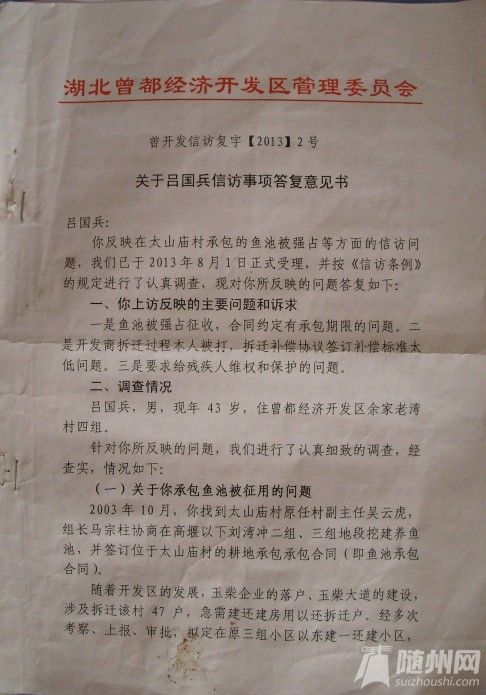 湖北曾都经济开发区管理委员会
曾开发信访复字【2013】2号
关于吕国兵信访事项答复意见书
吕国兵：
你反映在太山庙村承包的鱼池被强占等方面的信访问
题，我们已于2013年8月1日正式受理，并按《信访条例》
的规定进行了认真调查，现对你所反映的问题答复如下：
一、你上访反映的主要问题和诉求
一是鱼池被强占征收，合同约定有承包期限的问题。二
是开发商拆迁过程本人被打，拆迁补偿协议签订补偿标准太
低问题。三是要求给残疾人维权和保护的问题。
二、调查情况
吕国兵，男，现年 43 岁，住曾都经济开发区余家老湾
村四组。
针对你所反映的问题，我们进行了认真细致的调查，经
查实，情况如下：
（一）关于你承包鱼池被征用的问题
2003年10月，你找到太山庙村原任村副主任吴云虎，
组长马宗柱协商在高堰以下刘湾冲二组、三组地段挖建养鱼
池，并签订位于太山庙村的耕地承包承包合同（即鱼池承包
合同）。
随着开发区的发展，玉柴企业的落户、玉柴大道的建设，
涉及拆迁该村 47 户，急需建还建房用以还拆迁户。经多次
考察、上报、审批，拟定在原三组小区以东建一还建小区，
随州网
suizhoushi.com